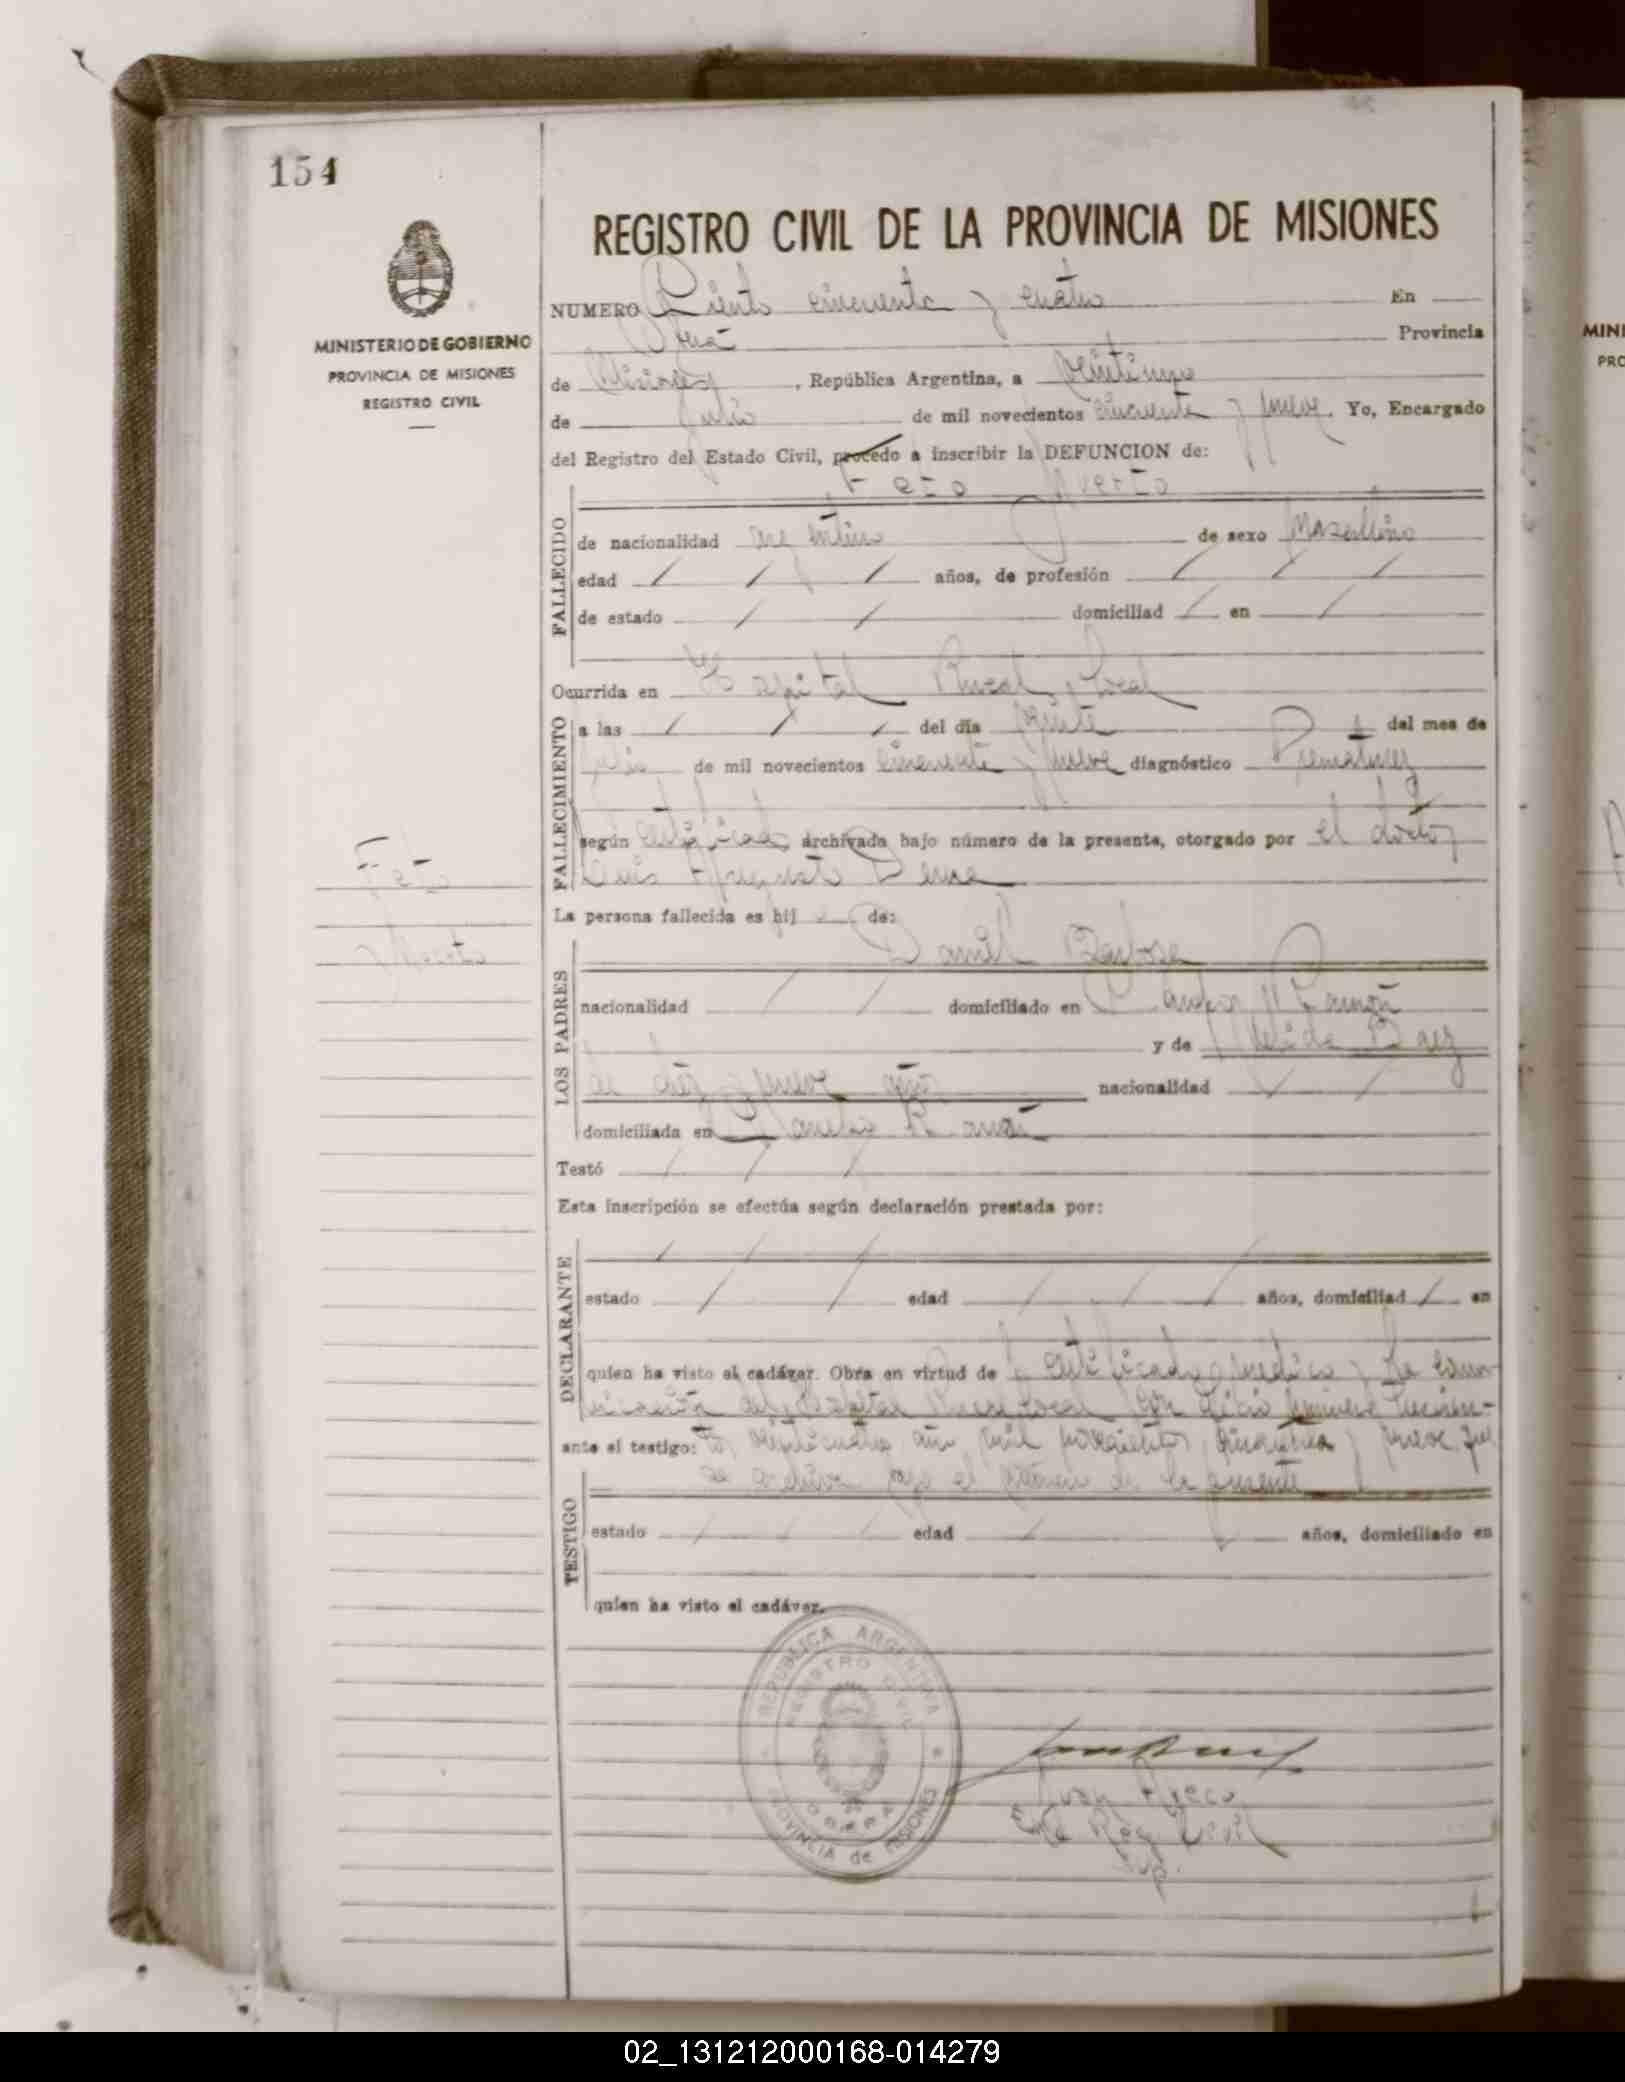 154
REGISTRO CIVIL DE LA PROVINCIA DE MISIONES
MINISTERIO DE GOBIERNO
PROVINCIA DE MISIONES
REGISTRO CIVIL
NUMERO Ciento cincuenta y cuatro En
Oberá Provincia
de Misiones, República Argentina, a veintiuno
de Julio de mil novecientos cincuenta y nueve. Yo, Encargado
del Registro del Estado Civil, procedo a inscribir la DEFUNCION de:
Feto Muerto
FALLECIDO
de nacionalidad argentino de sexo Masculino
edad / / / años, de profesión / / /
de estado / / domiciliad / en /
Ocurrida en Hospital Rural Local
FALLECIMIENTO
a las / / / del día veinte del mes de
julio de mil novecientos cincuenta y nueve diagnóstico Prematurez
según certificado archivada bajo número de la presente, otorgado por el doctor
Luis Augusto
Feto
Muerto
La persona fallecida es hij de:
LOS PADRES
Daniel Barboza
nacionalidad / / domiciliado en Campo Ramón
y de Baez
de diez y nueve años nacionalidad / /
domiciliada en Campo Ramón
Testó / / /
Esta inscripción se efectúa según declaración prestada por:
DECLARANTE
/ / / /
estado / / edad / / / años, domiciliad / en
quien ha visto el cadáver. Obra en virtud de certificado médico y la comu-
nicación del Hospital Rural Local número
ante el testigo: veinticuatro año mil novecientos cincuenta y nueve que
se archiva bajo el número de la presente
TESTIGO
estado / / / edad / / años, domiciliado en
quien ha visto el cadáver.
REPUBLICA ARGENTINA
REGISTRO CIVIL
OBERA
PROVINCIA de MISIONES
Juan
Enc Reg Civil
MINI
PRO
02_131212000168-014279